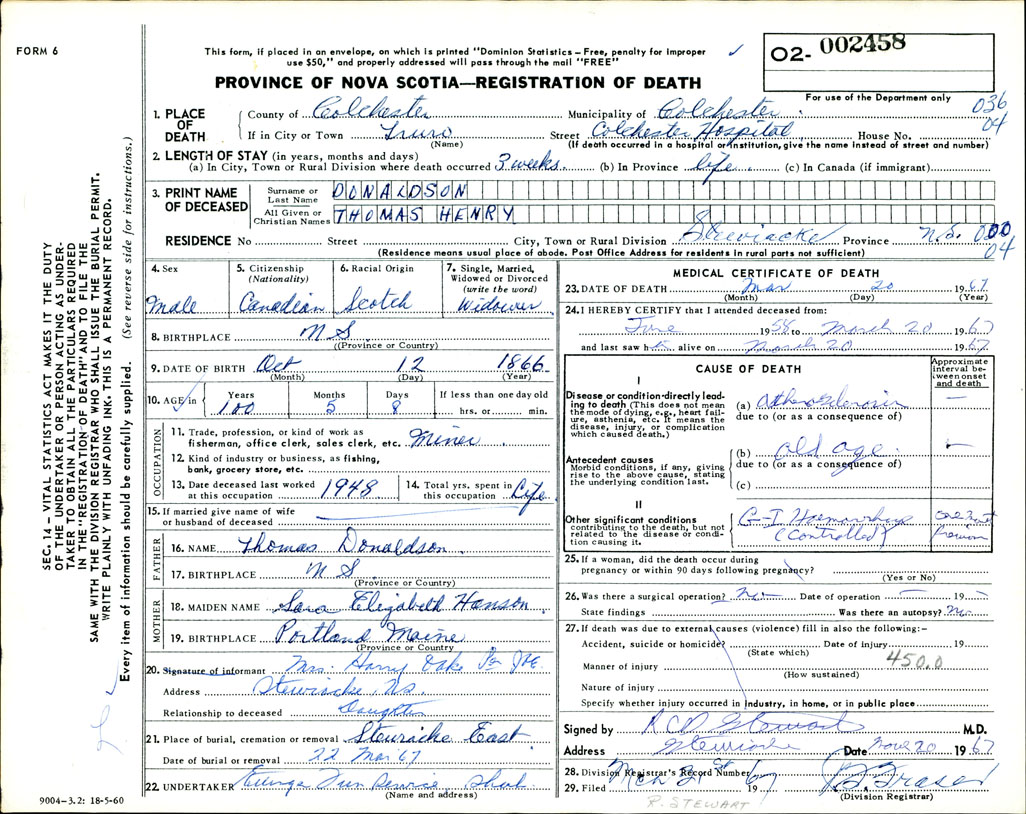 FORM 6
This form, if placed in an envelope, on which is printed "Dominion Statistics – Free, penalty for improper
use $50," and properly addressed will pass through the mail "FREE"
PROVINCE OF NOVA SCOTIA—REGISTRATION OF DEATH
O2- 002458
For use of the Department only
036
04
1. PLACE OF DEATH
County of Colchester Municipality of Colchester
If in City or Town Truro Street Colchester Hospital House No.
(Name) (If death occurred in a hospital or institution, give the name instead of street and number)
2. LENGTH OF STAY (in years, months and days)
(a) In City, Town or Rural Division where death occurred 3 weeks (b) In Province life (c) In Canada (if immigrant)
3. PRINT NAME OF DECEASED
Surname or Last Name DONALDSON
All Given or Christian Names THOMAS HENRY
RESIDENCE No Street City, Town or Rural Division Stewiacke Province N.S. 000
04
(Residence means usual place of abode. Post Office Address for residents in rural parts not sufficient)
4. Sex Male
5. Citizenship (Nationality) Canadian
6. Racial Origin Scotch
7. Single, Married, Widowed or Divorced (write the word) Widower
8. BIRTHPLACE N S
(Province or Country)
9. DATE OF BIRTH Oct 12 1866
(Month) (Day) (Year)
10. AGE in Years 100 Months 5 Days 8 If less than one day old hrs. or min.
OCCUPATION
11. Trade, profession, or kind of work as
fisherman, office clerk, sales clerk, etc. Miner
12. Kind of industry or business, as fishing,
bank, grocery store, etc.
13. Date deceased last worked at this occupation 1948
14. Total yrs. spent in this occupation Life
15. If married give name of wife
or husband of deceased
FATHER
16. NAME Thomas Donaldson
17. BIRTHPLACE N S
(Province or Country)
MOTHER
18. MAIDEN NAME Sara Elizabeth Hanson
19. BIRTHPLACE Portland Maine
(Province or Country)
20. Signature of informant Mrs. Harry Oake
Address Stewiacke, NS.
Relationship to deceased Daughter
21. Place of burial, cremation or removal Stewiacke East
Date of burial or removal 22 Mar '67
22. UNDERTAKER
(Name and address)
MEDICAL CERTIFICATE OF DEATH
23. DATE OF DEATH Mar 20 1967
(Month) (Day) (Year)
24. I HEREBY CERTIFY that I attended deceased from:
June 1958 to March 20 1967
and last saw h alive on March 20 1967
CAUSE OF DEATH
Approximate interval between onset and death
I
Disease or condition directly leading to death (This does not mean the mode of dying, e.g., heart failure, asthenia, etc. It means the disease, injury, or complication which caused death.)
(a)
due to (or as a consequence of)
Antecedent causes
Morbid conditions, if any, giving rise to the above cause, stating the underlying condition last.
(b) old age
due to (or as a consequence of)
(c)
II
Other significant conditions contributing to the death, but not related to the disease or condition causing it.
G-I Haemorrhage
(Controlled)
25. If a woman, did the death occur during
pregnancy or within 90 days following pregnancy?
(Yes or No)
26. Was there a surgical operation? No Date of operation 19
State findings Was there an autopsy? No
27. If death was due to external causes (violence) fill in also the following:-
Accident, suicide or homicide? Date of injury 19
(State which)
450.0
Manner of injury
(How sustained)
Nature of injury
Specify whether injury occurred in industry, in home, or in public place
Signed by R C D Stewart M.D.
Address Stewiacke Date 20 1967
28. Division Registrar's Record Number
29. Filed 1967 Fraser
(Division Registrar)
R. STEWART
SEC. 14 – VITAL STATISTICS ACT MAKES IT THE DUTY
OF THE UNDERTAKER OR PERSON ACTING AS UNDER-
TAKER TO OBTAIN ALL THE PARTICULARS REQUIRED
IN THE "REGISTRATION OF DEATH" AND TO FILE THE
SAME WITH THE DIVISION REGISTRAR WHO SHALL ISSUE THE BURIAL PERMIT.
WRITE PLAINLY WITH UNFADING INK. THIS IS A PERMANENT RECORD.
Every item of information should be carefully supplied. (See reverse side for instructions.)
9004-3.2: 18-5-60